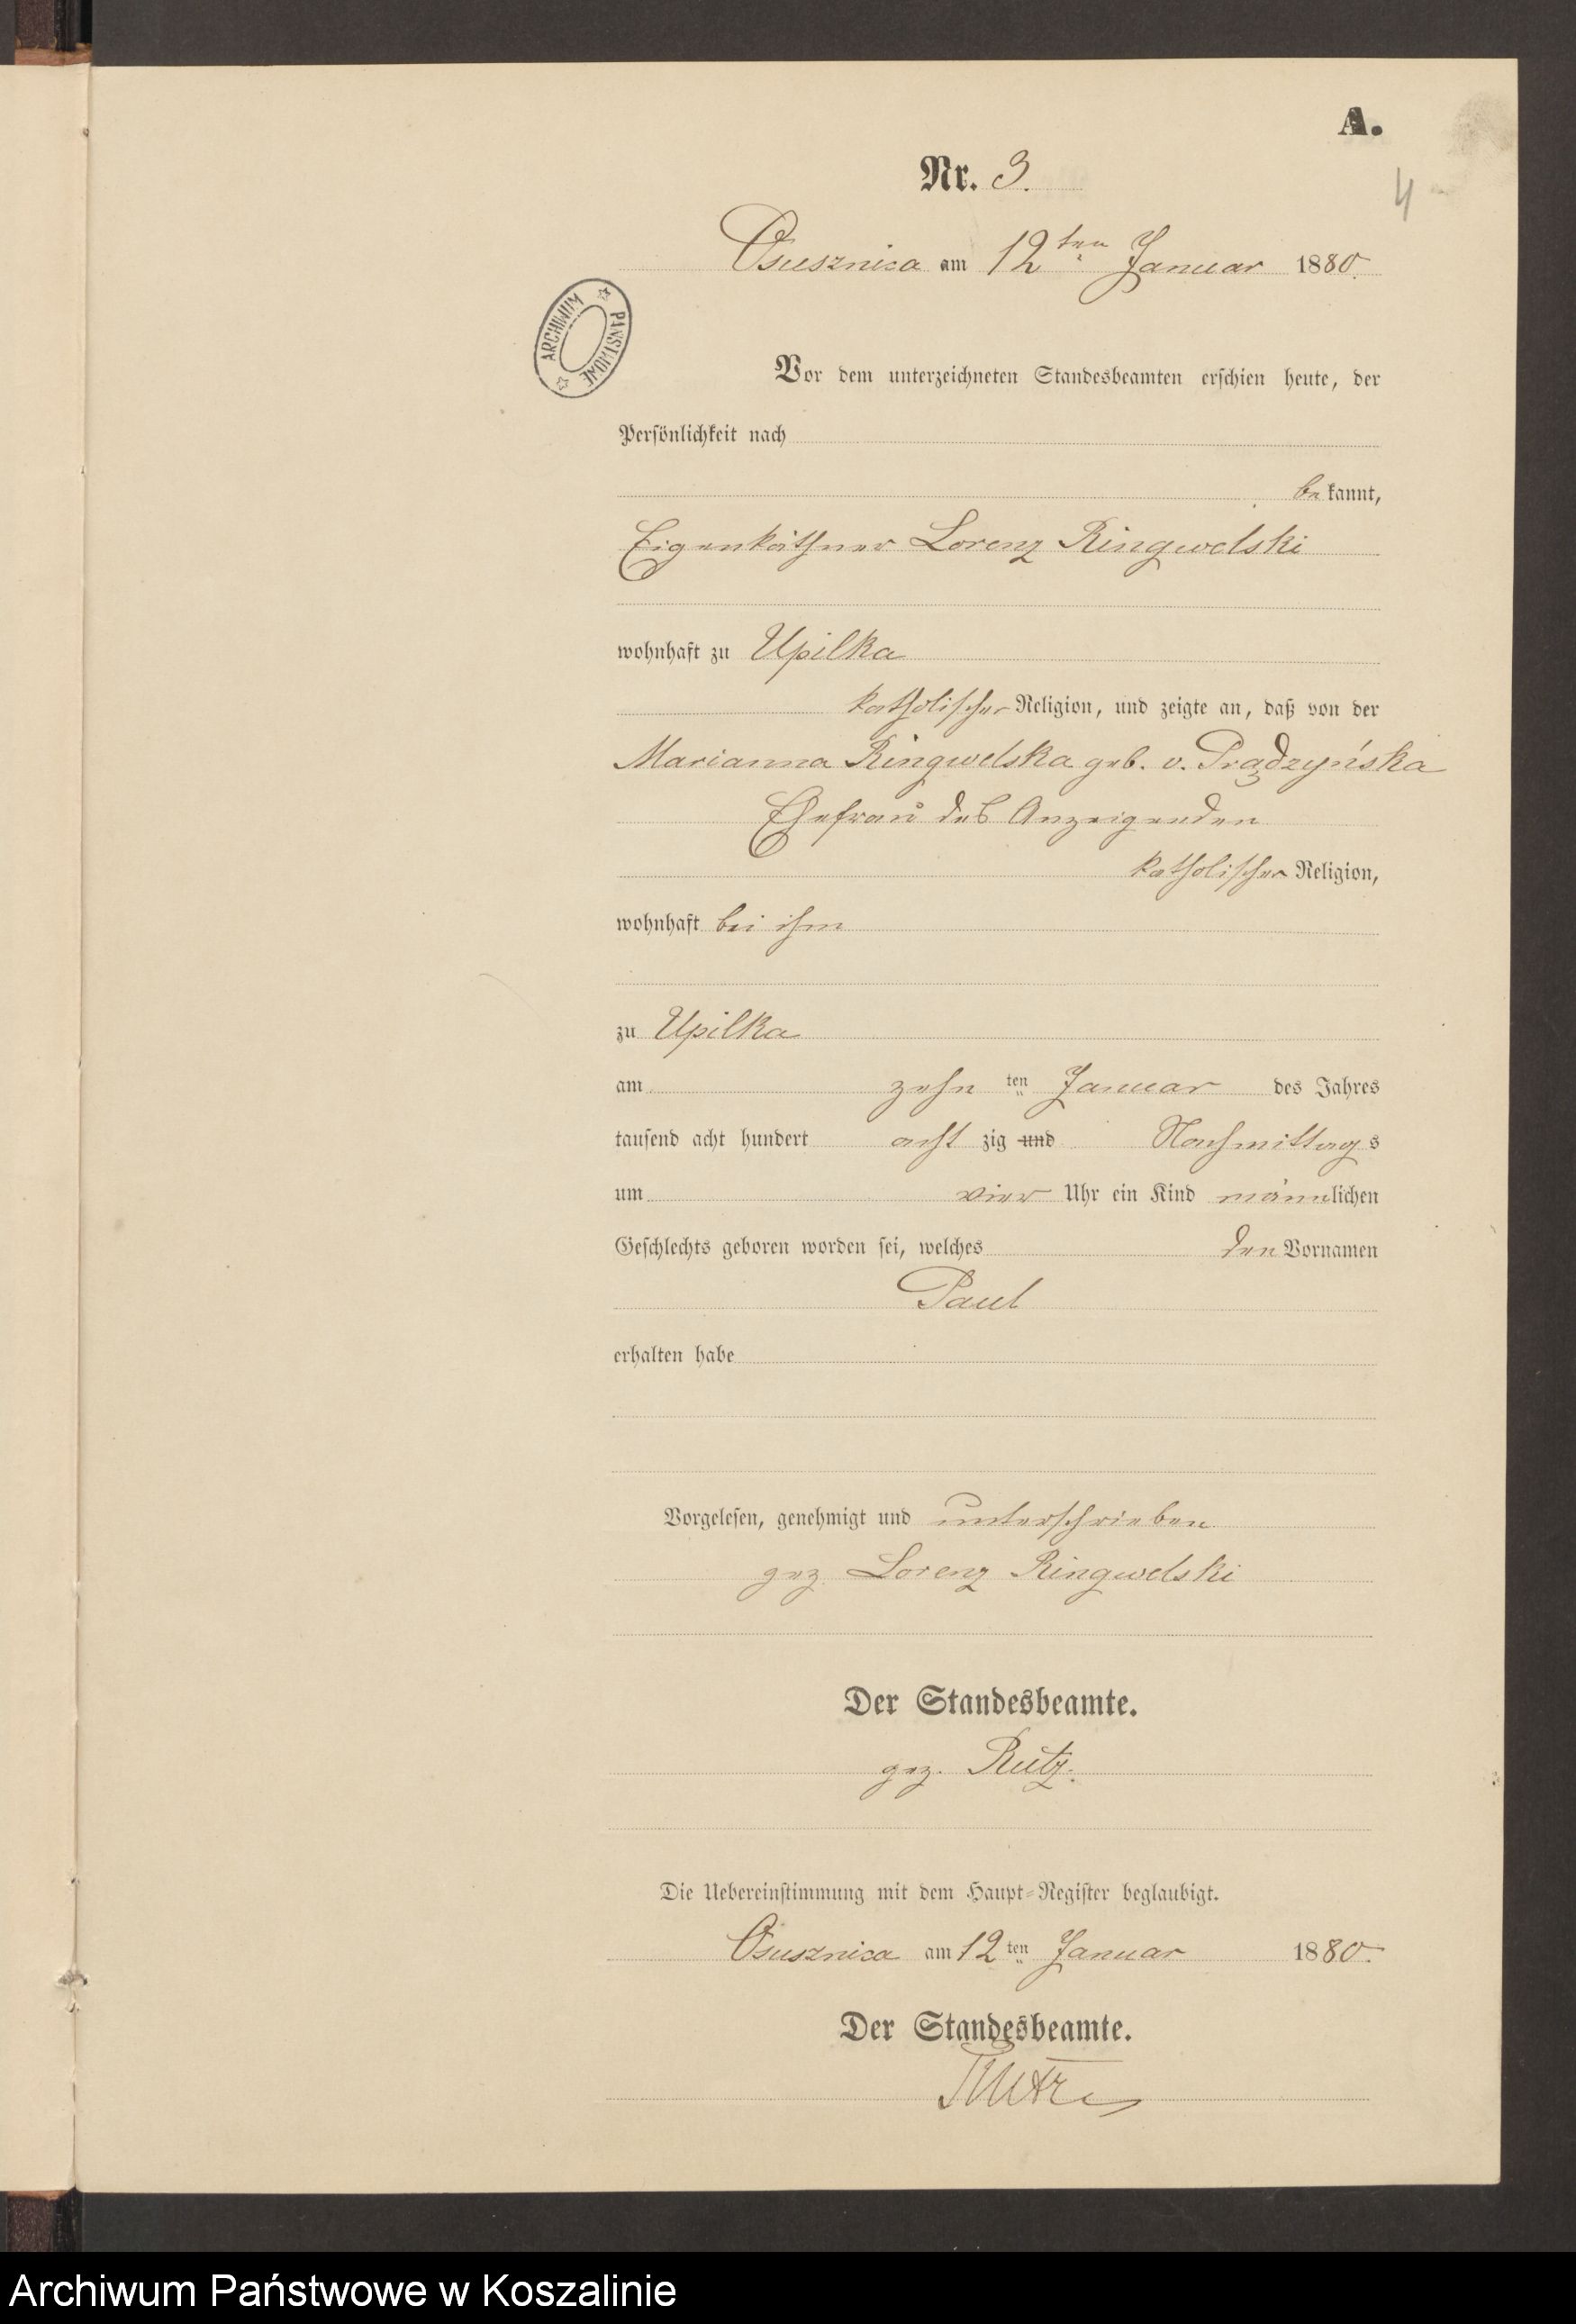 A.
Nr. 3.
4
Osusznica am 12ten Januar 1880.
ARCHIWUM PAŃSTWOWE
Vor dem unterzeichneten Standesbeamten erschien heute, der
Persönlichkeit nach
bekannt,
Eigenkäthner Lorenz Ringwelski
wohnhaft zu Upilka
katholischer Religion, und zeigte an, daß von der
Marianna Ringwelska geb. v. Prądzyńska
Ehefrau des Anzeigenden
katholischer Religion,
wohnhaft bei ihm
zu Upilka
am zehn ten Januar des Jahres
tausend acht hundert acht zig und Nachmittags
um vier Uhr ein Kind männlichen
Geschlechts geboren worden sei, welches den Vornamen
Paul
erhalten habe
Vorgelesen, genehmigt und unterschrieben
gez. Lorenz Ringwelski
Der Standesbeamte.
gez. Rutz.
Die Uebereinstimmung mit dem Haupt-Register beglaubigt.
Osusznica am 12ten Januar 1880.
Der Standesbeamte.
Rutz
Archiwum Państwowe w Koszalinie